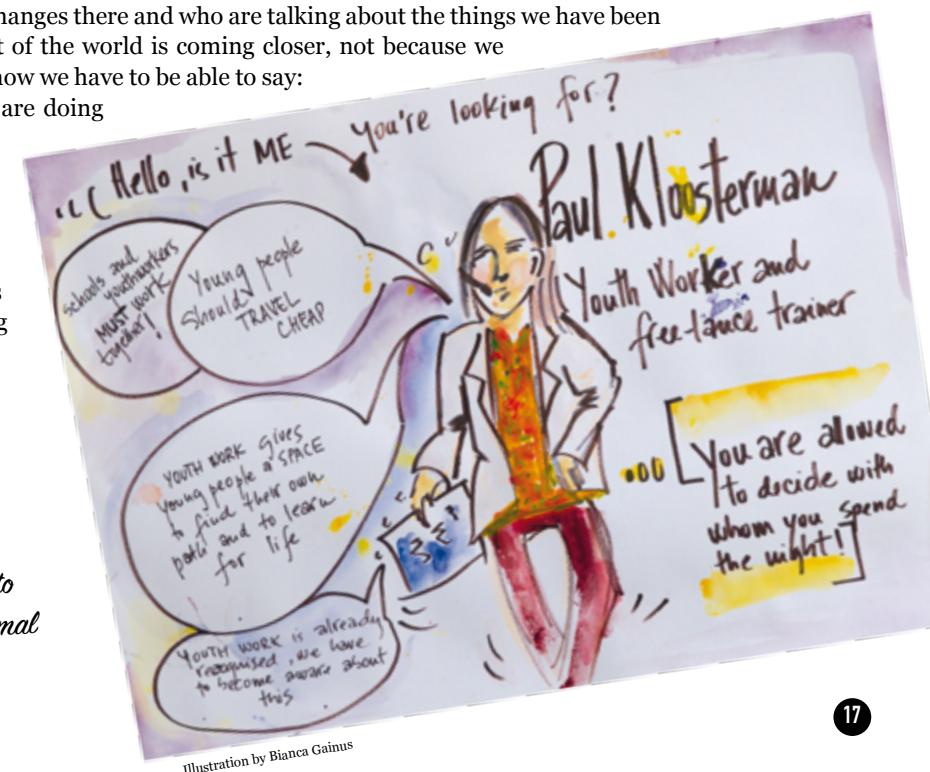 hanges there and who are talking about the things we have been
t of the world is coming closer, not because we
now we have to be able to say:
are doing
s
g
to
mal
Hello, is it ME
you're looking for?
Paul Kloosterman
Youth Worker and
free-lance trainer
Schools and
youthworkers
MUST work
together!
Young people
should
TRAVEL
CHEAP
YOUTH WORK gives
young people a SPACE
to find their own
path and to learn
for life
YOUTH WORK is already
recognised, we have
to become aware about
this
...
[You are allowed
to decide with
whom you spend
the night!]
Illustration by Bianca Gainus
17